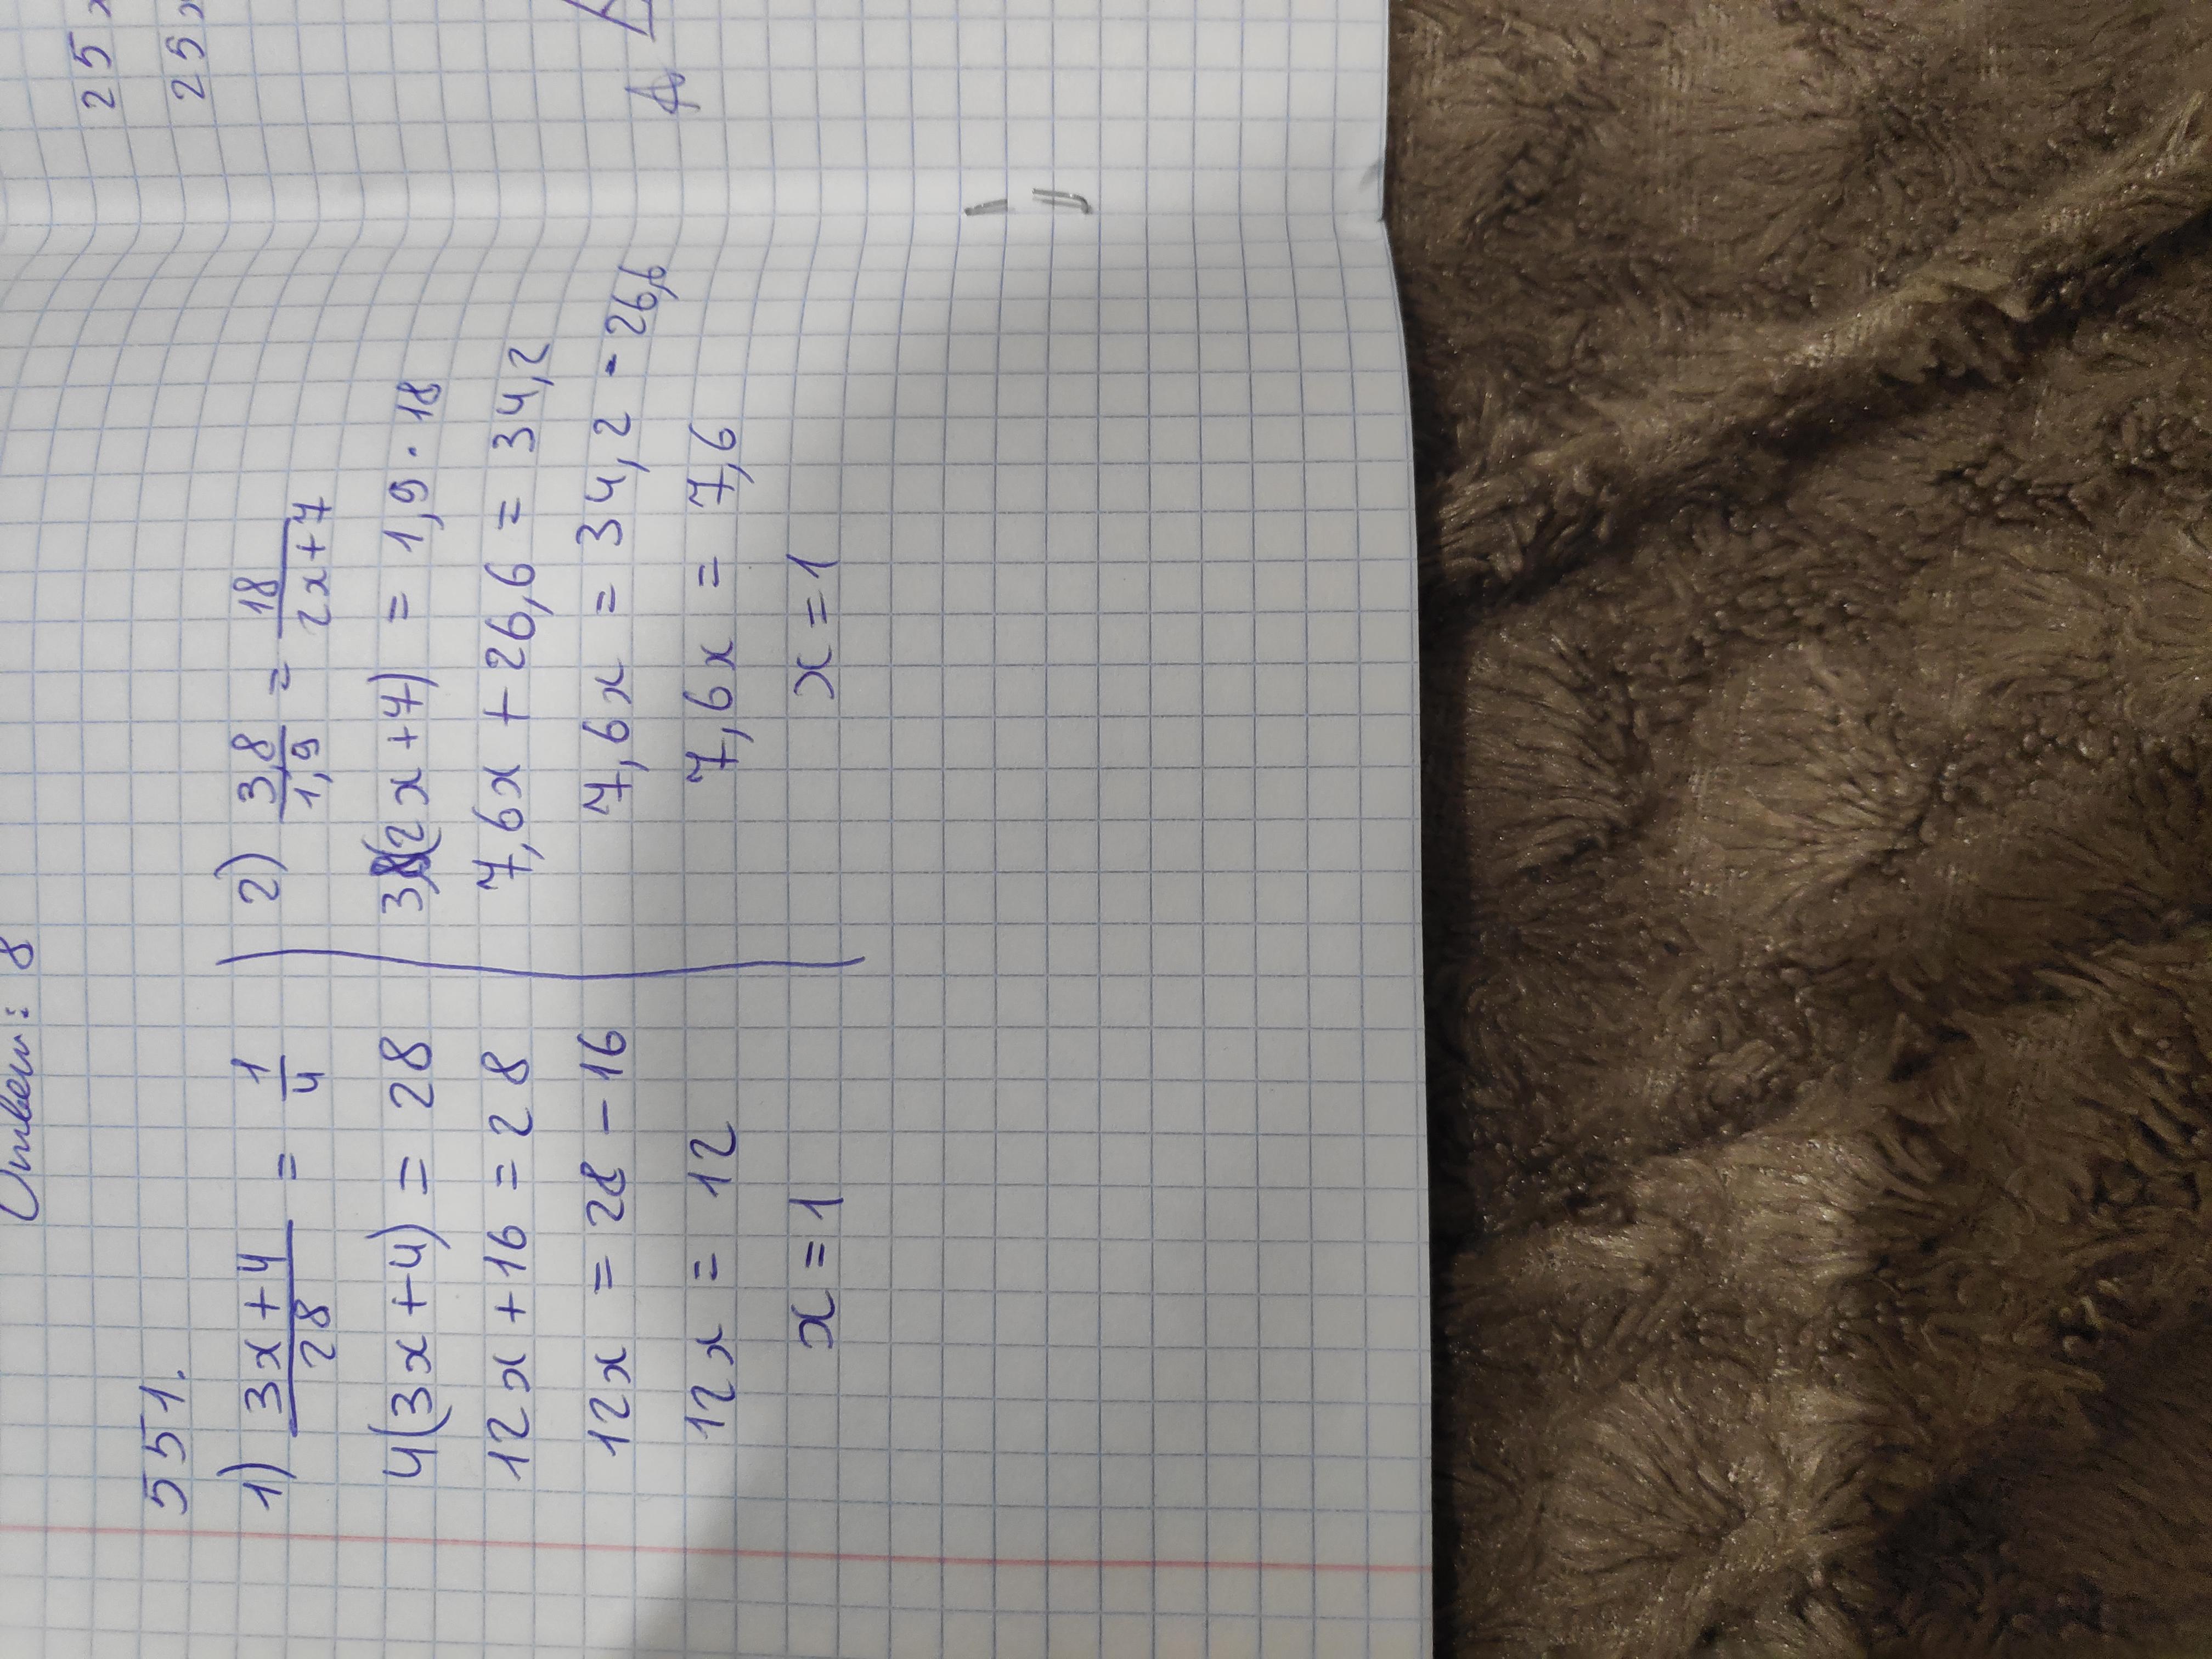 Ответ: 8
551.
1) \frac{3x+4}{28} = \frac{1}{4}
4(3x+4) = 28
12x+16=28
12x = 28-16
12x = 12
x=1
2) \frac{3,8}{1,9} = \frac{18}{2x+7}
3,8(2x+7) = 1,9·18
7,6x+26,6=34,2
7,6x = 34,2-26,6
7,6x = 7,6
x=1
25
25
A